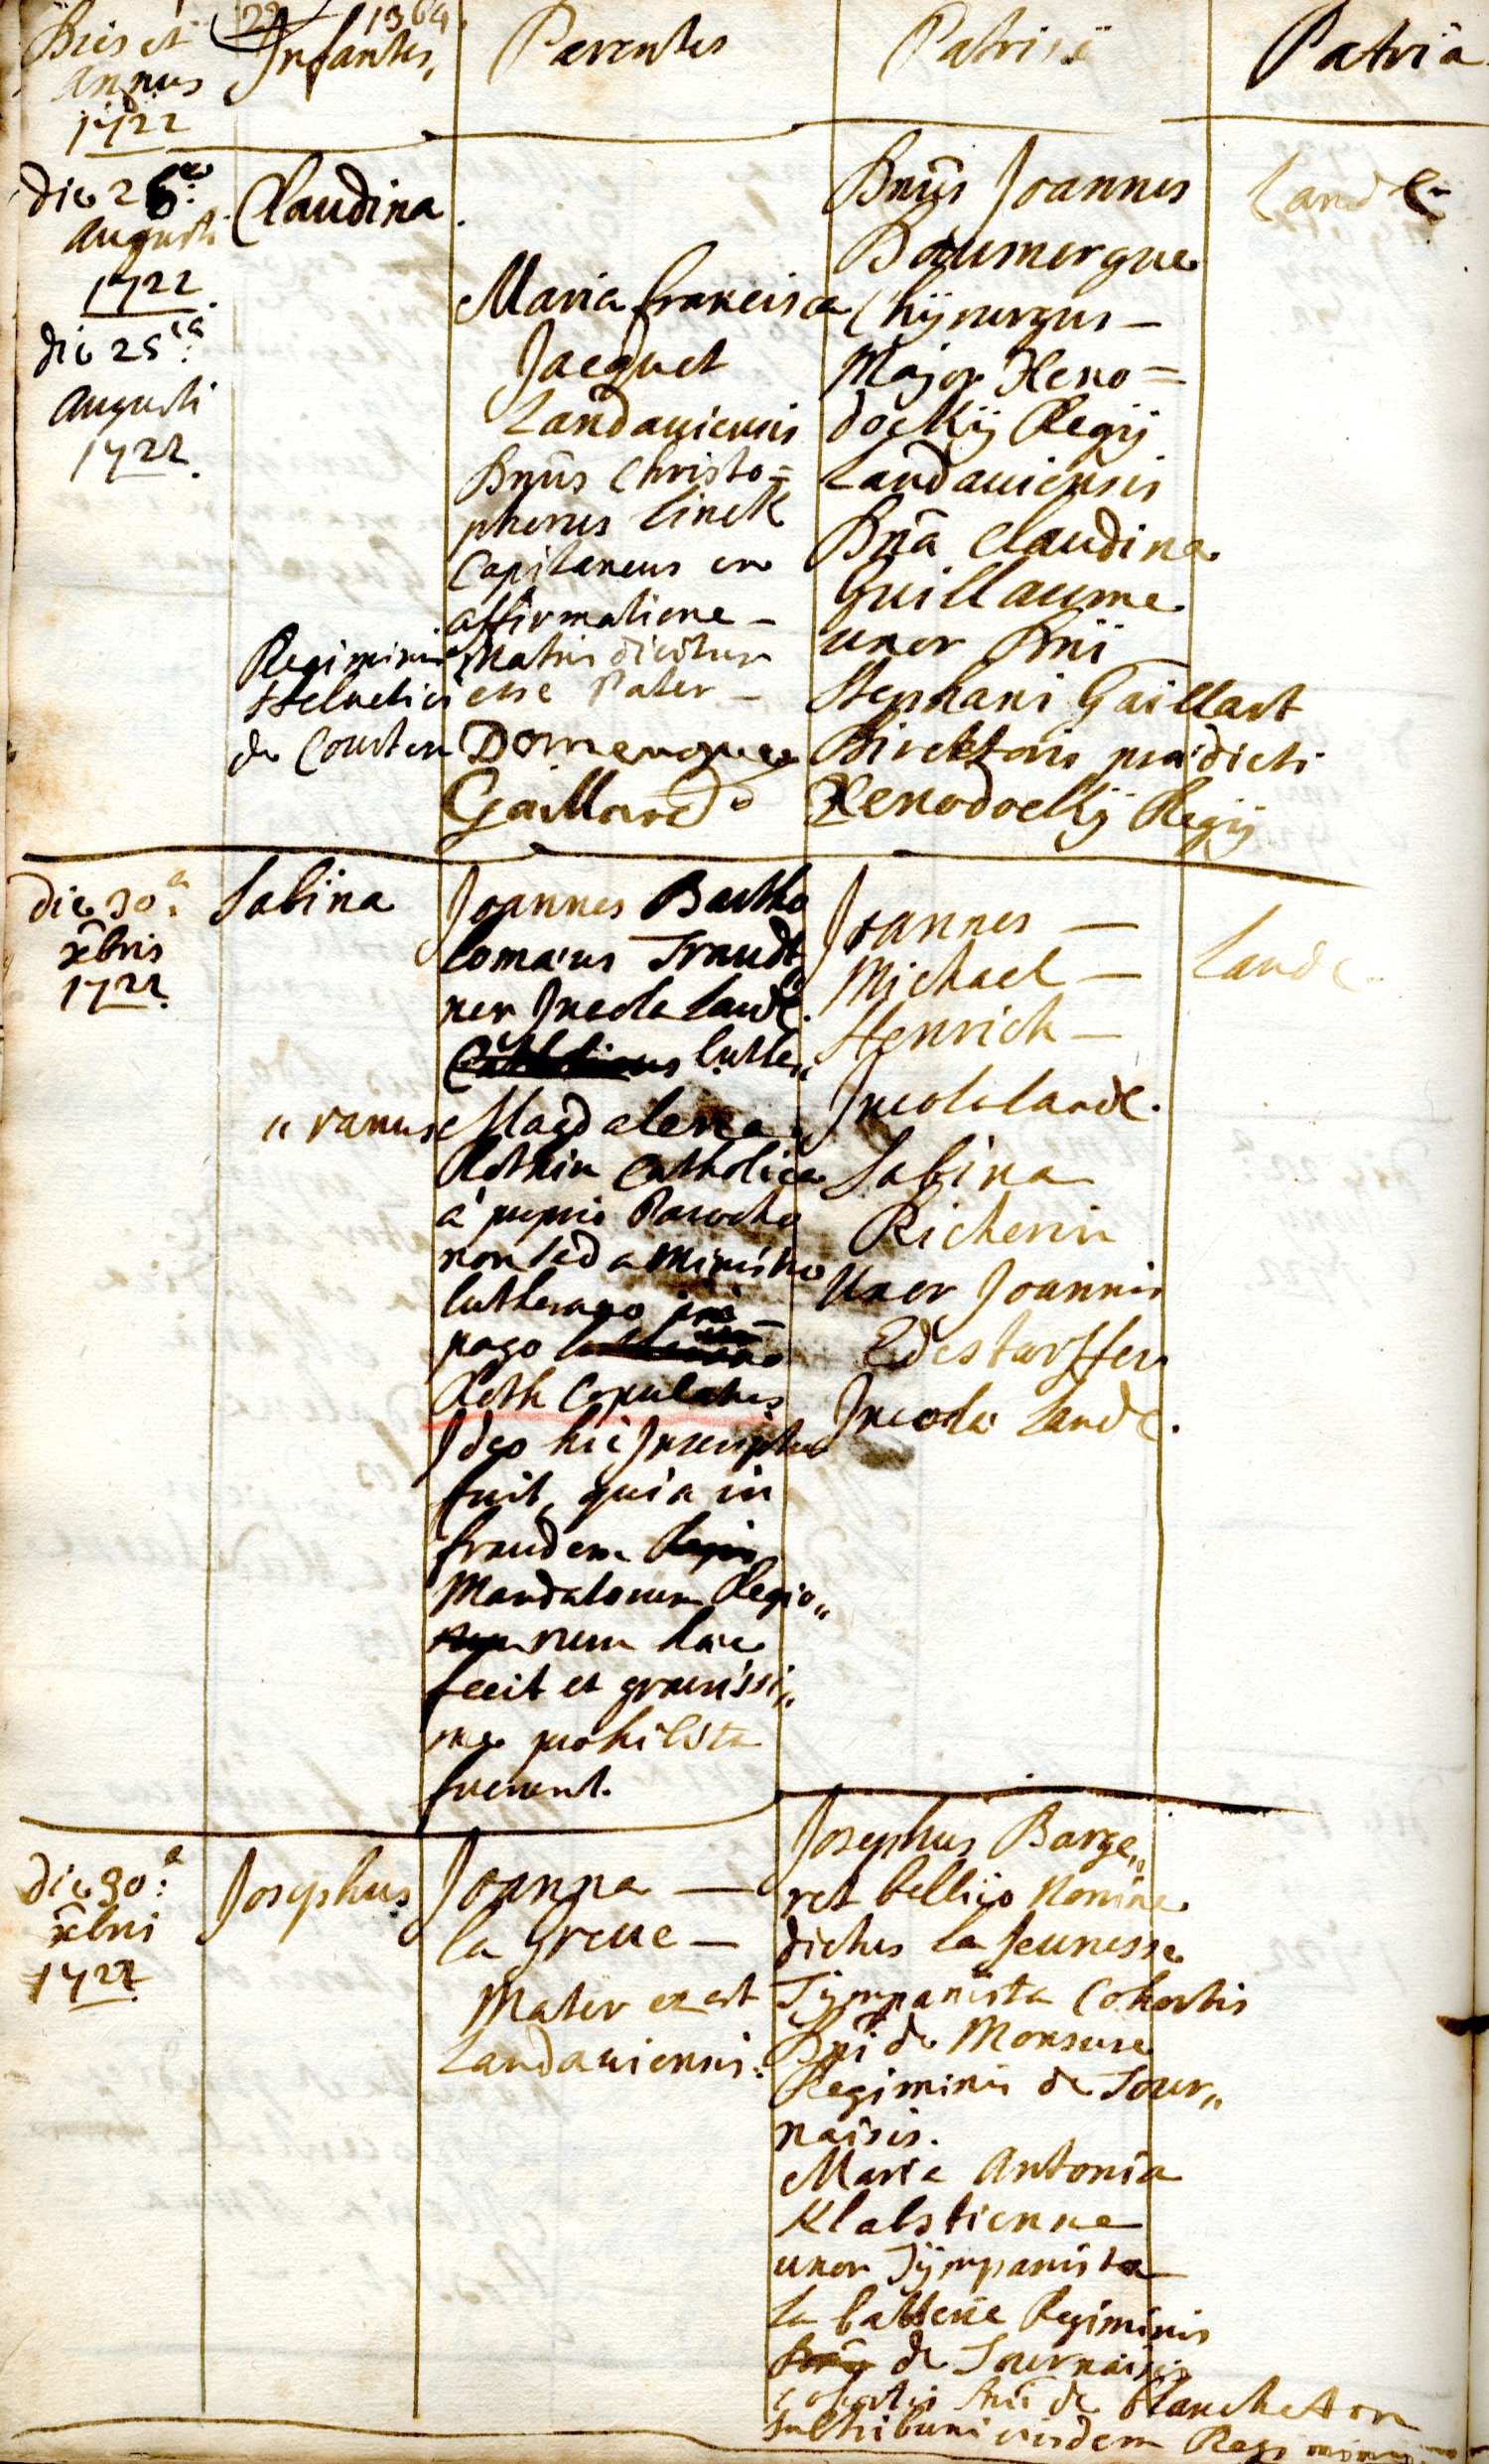 Dies et
annus
1722
22 1364
Infantes,
Parentes
Patrini
Patria
die 26.a
Augusti
1722
die 25.ta
Augusti
1722.
Claudina
Maria francisca
Jacquet
Landaviensis
Dnus Christo=
pherus Linck
Capitaneus
affirmatione
Regiminis
Helvetici
de Courten
Matris dicitur
esse Pater
Domengue
Gaillard
Dnus Joannes
Doumergue
Chijrurgus
Major Xeno=
dochij Regij
Landaviensis
Dna Claudina
Guillaume
uxor Dni
Stephani Gaillart
Direktoris praedicti
Xenodochij Regij
Land
die 30.a
xbris
1722.
Sabina
Joannes Bartho
lomaeus Traudt
ner Incola Land.
Luthe„
„ranus
Magdalena
Rothin Catholica
a proprio Parocho
non sed a Ministro
lutherano in
pago
Roth Copulatus
Ideo hic Inscriptus
fuit, quia in
fraudem
Mandatorum Regio„
rum haec
fecit et gravissi„
me prohibita
fuerunt.
Joannes
Michael
Henrich
Incola Land.
Sabina
Richerin
Uxor Joannis
Edestorffer
Incola Land.
Land
die 30.a
xbris
1722
Josephus
Joanna
la Greue
Mater ex est
Landaviensis.
Josephus Barge„
ret bellico Nomine
dictus la Jeunesse
Tympanista Cohortis
Dni de Monsure
Regiminis de Tour„
naisis.
Maria Antonia
Klabstienne
uxor Tympanista
la batterie Regiminis
de Tournaisis
Cohortis Dni de Blanchetton
eiusdem Regiminis